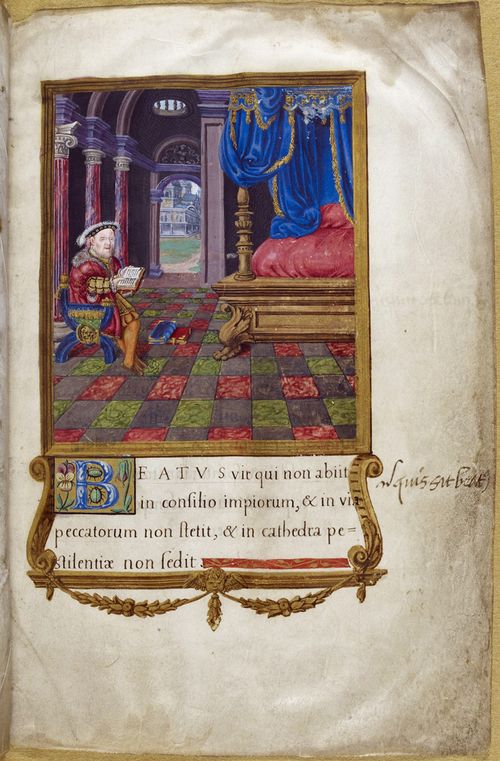 BEATVS vir qui non abiit
in conſilio impiorum, & in via
peccatorum non ſtetit, & in cathedra pe=
ſtilentiæ non ſedit.
quis sit